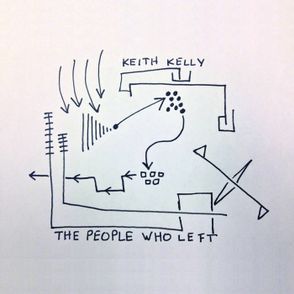 KEITH KELLY
THE PEOPLE WHO LEFT